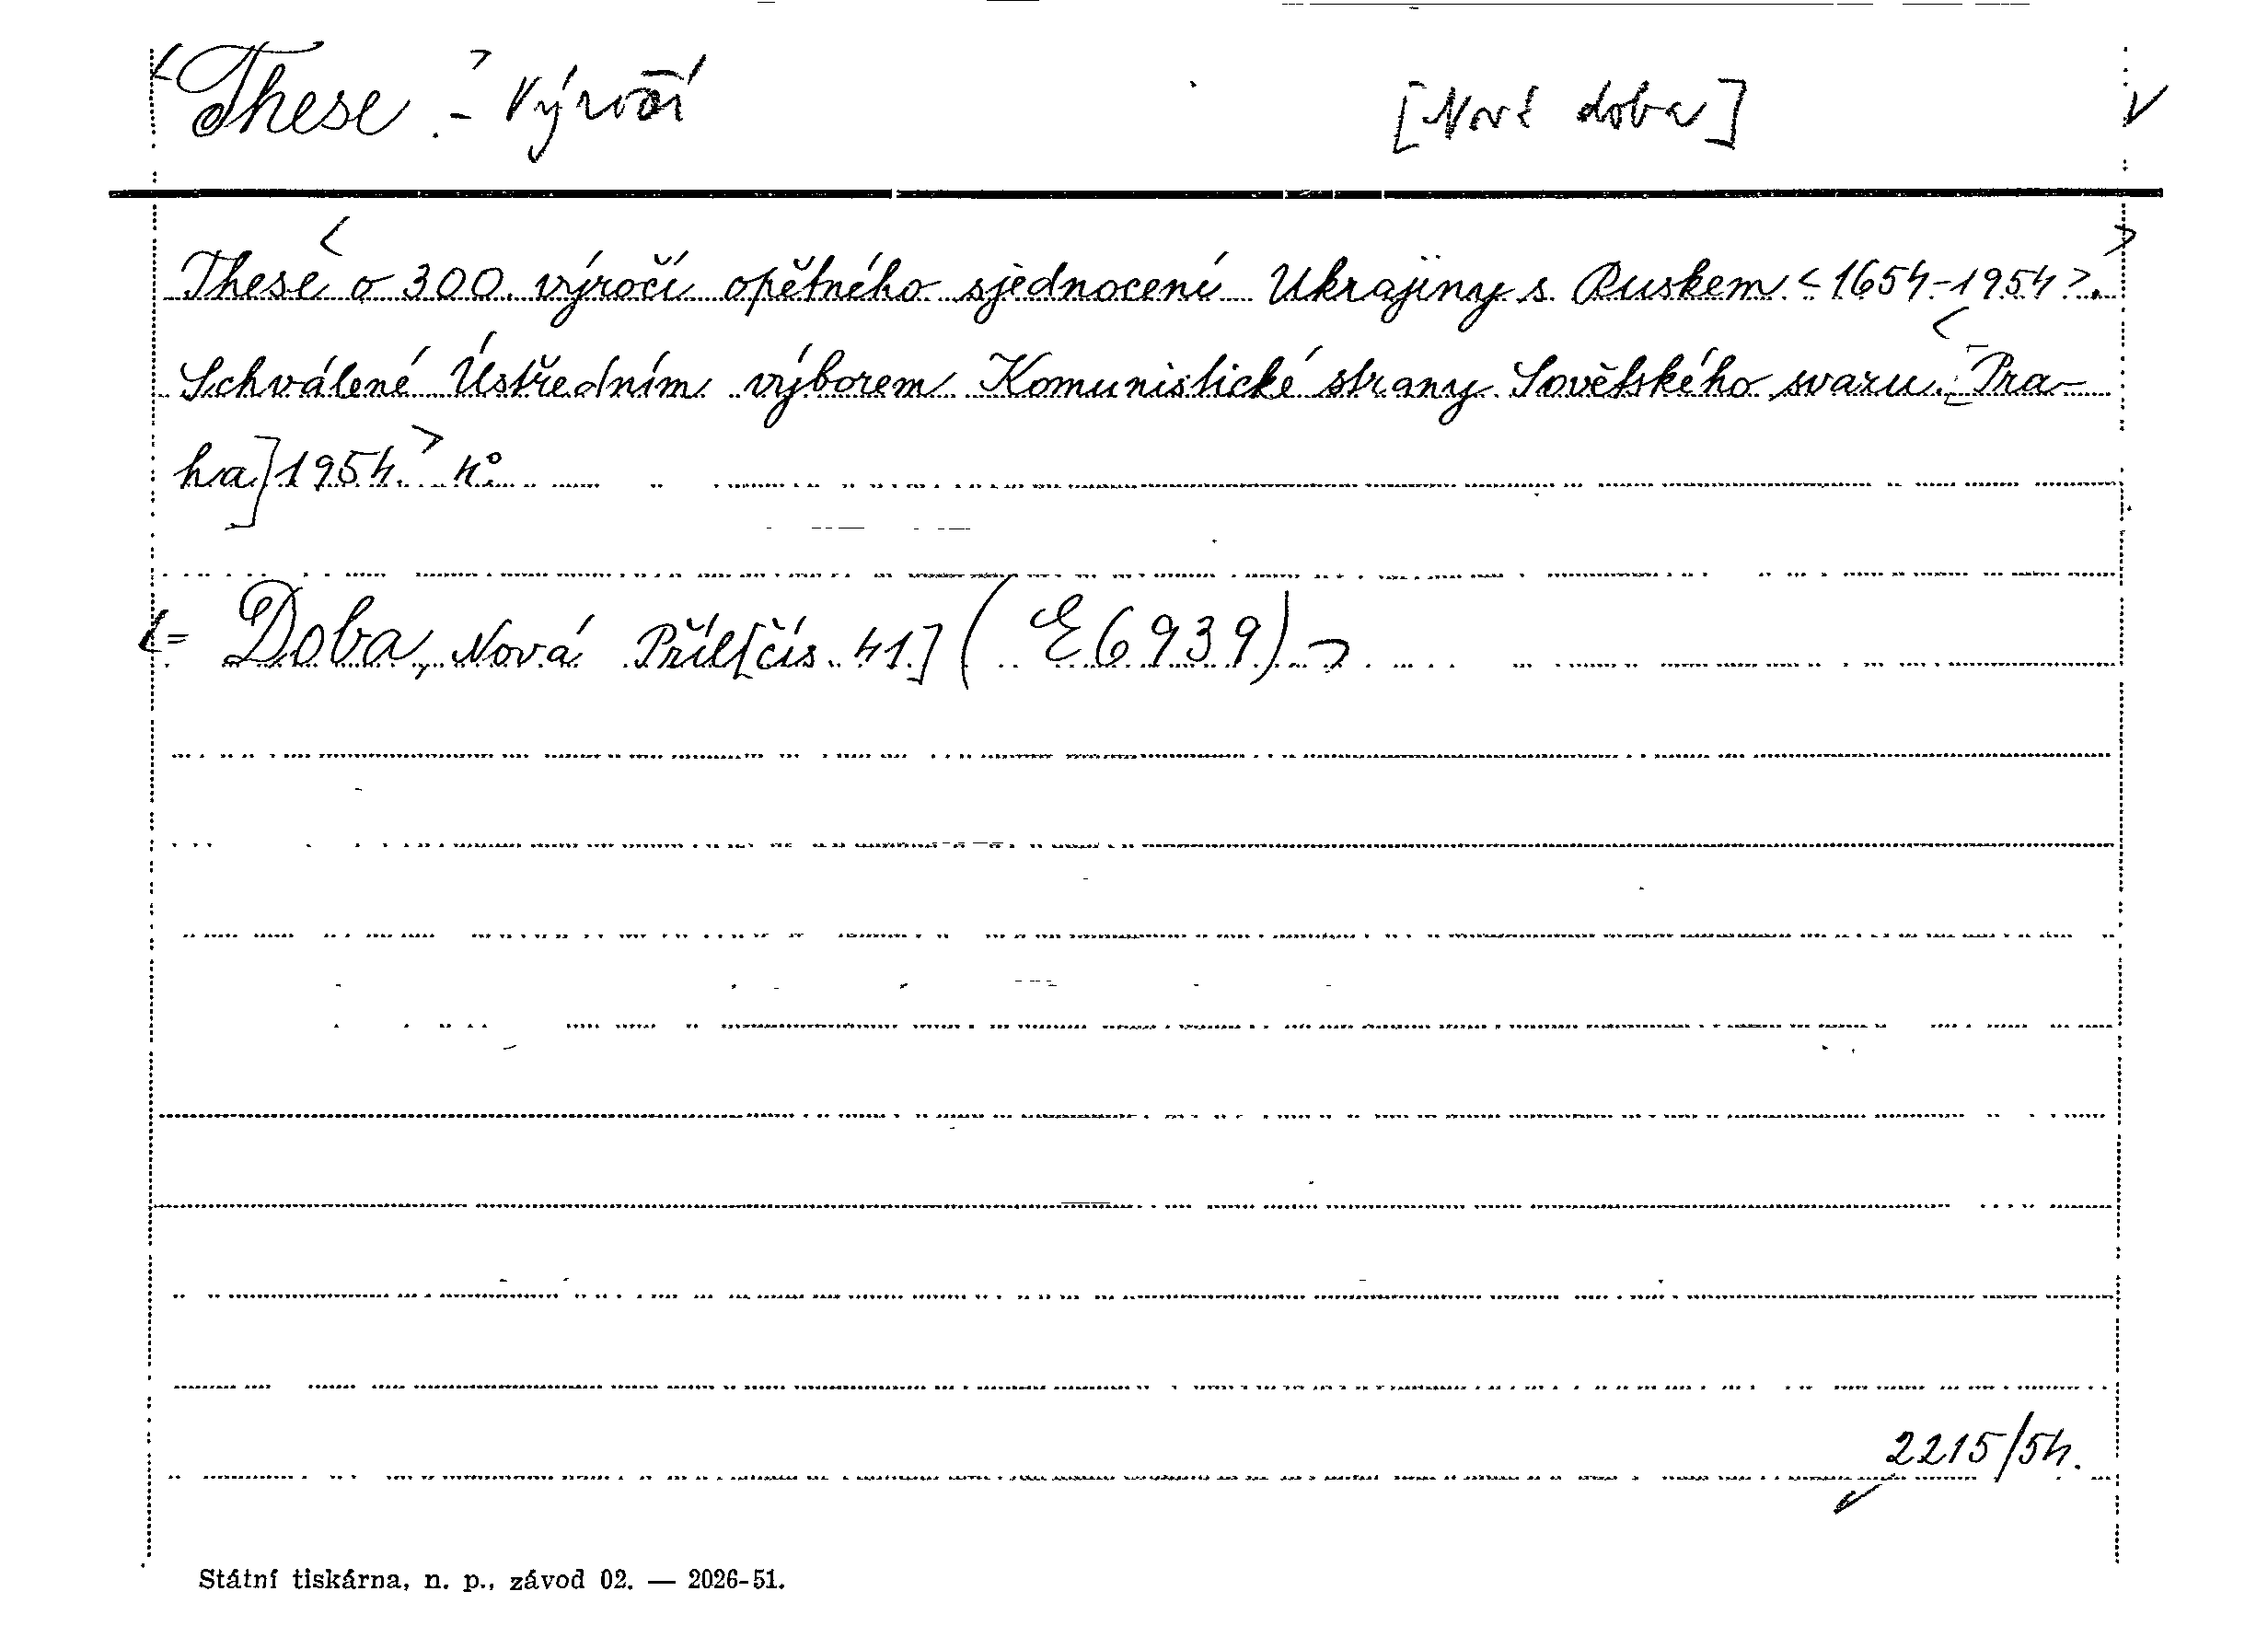 <These> - Výročí [Nová doba] √
These <o 300. výročí opětného sjednocení Ukrajiny s Ruskem <1654-1954>.>
Schválené Ústředním výborem Komunistické strany Sovětského svazu. <[Pra-
ha] 1954.> 4°.
<= Doba, Nová Příl[čís. 41] (E6939)>
2215/54.
Státní tiskárna, n. p., závod 02. — 2026-51.